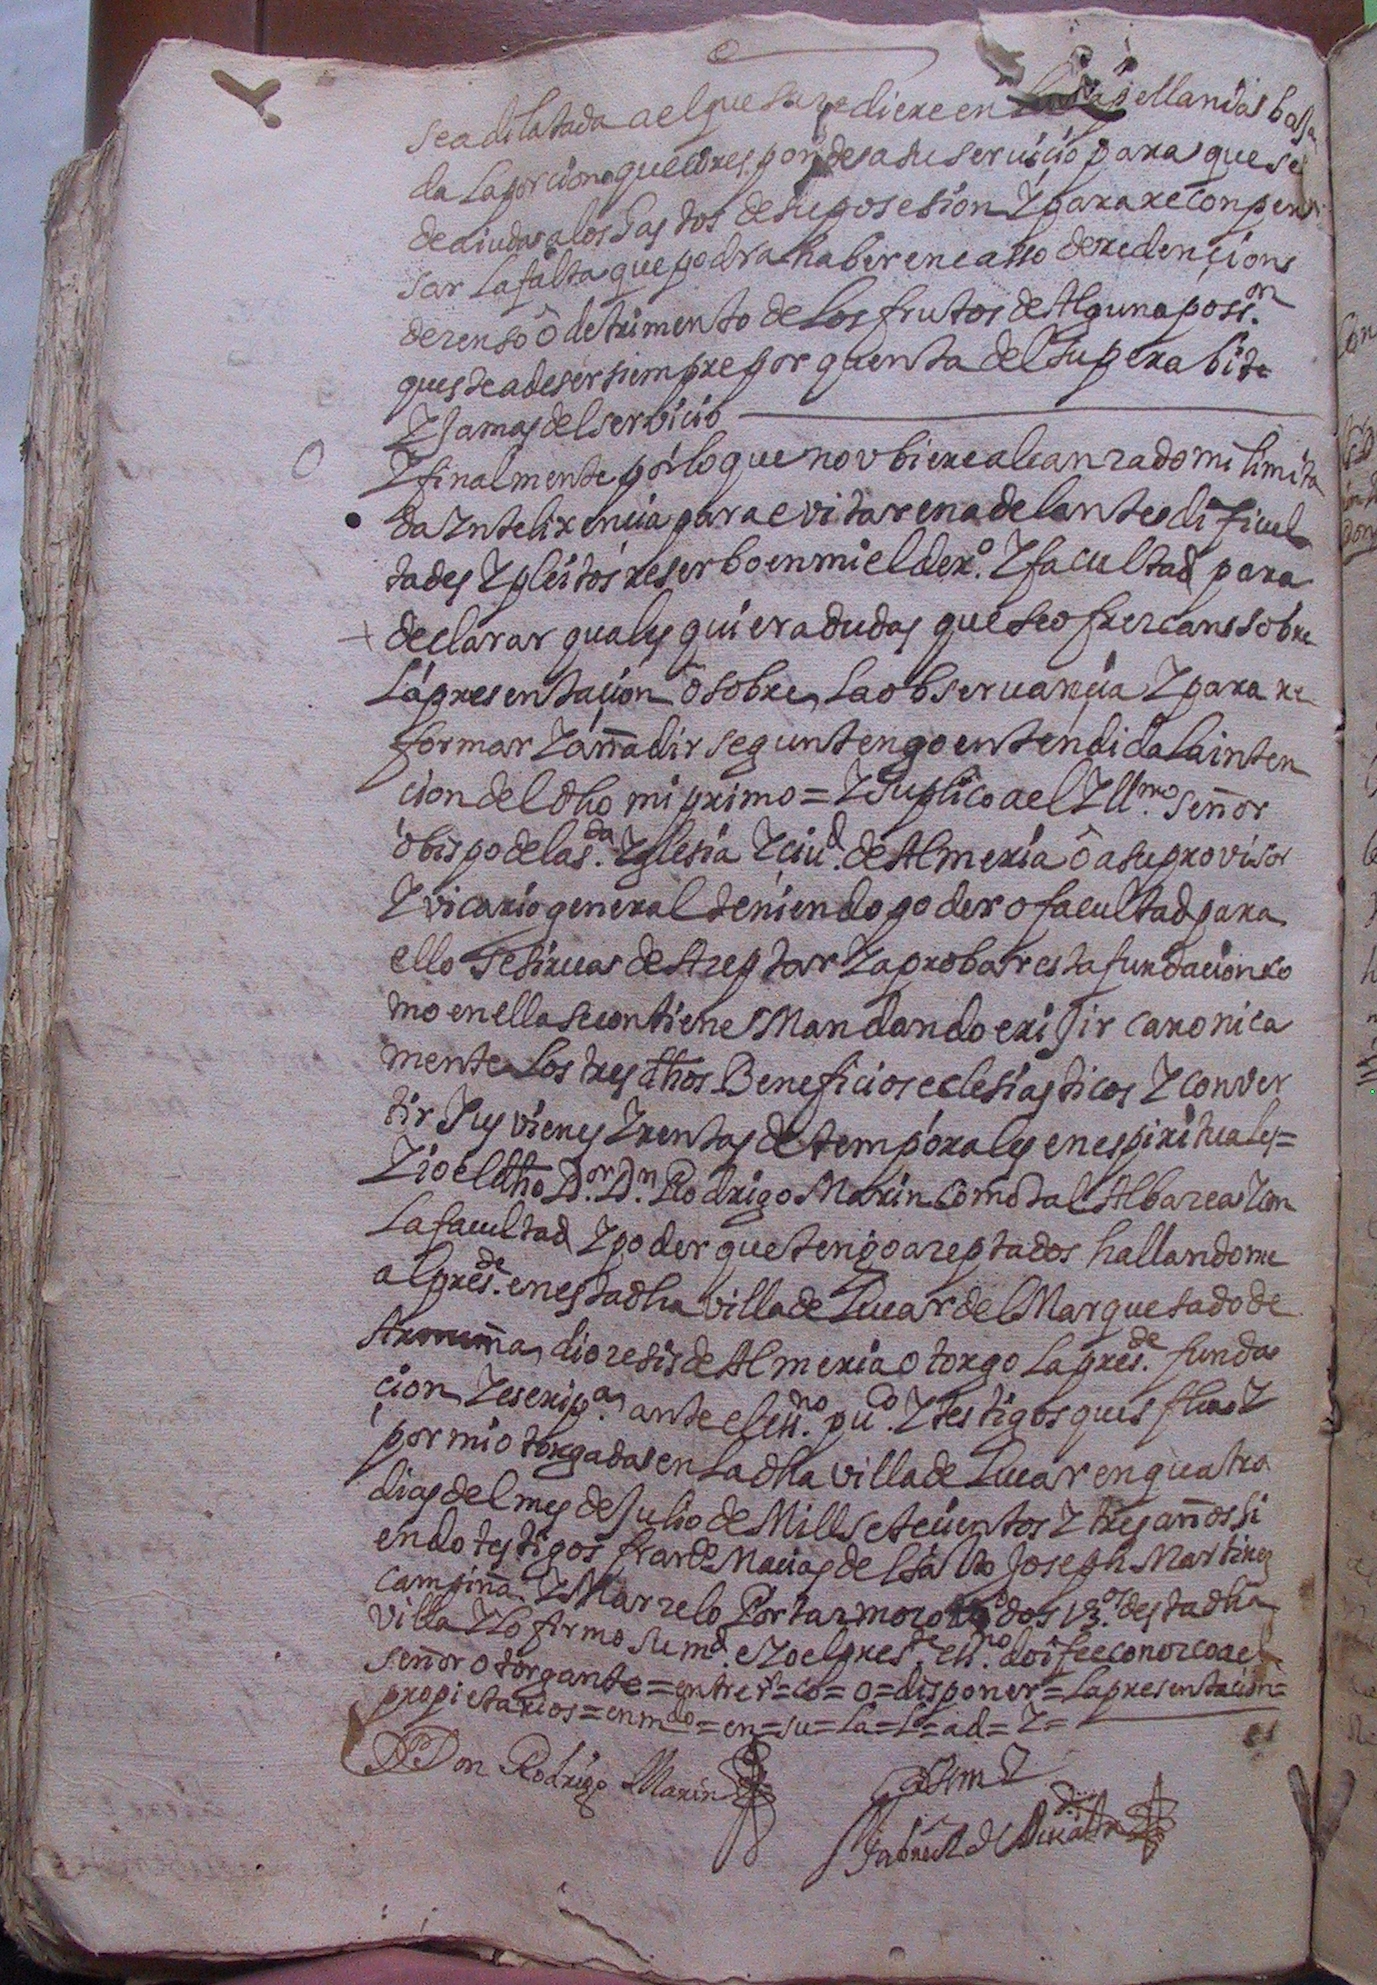 sea dilatada a el que suzediere en las capellanias baja
da la porcion que corresponde a su servicio para que se
de aiuda a los gastos de su posesion Y para reconpen
sar la falta que podra haber en casso de redencions
de zenso ô detrimento de los frutos de Alguna poss.on
que este a de ser siempre por quenta del superabite
Y jamas del servicio
Y finalmente por lo que no vbiere alcanzado mi limita
da Yntelixencia para evitar en adelante dificul
tades Y pleitos reserbo en mi el der.o Y facultad para
declarar quales quiera dudas que se ofrezcan sobre
la presentacion ô sobre la observancia Y para re
formar Y añadir segun tengo entendida la inten
cion del dho mi primo = Y suplico a el Yll.mo señor
obispo de la s.da Yglesia Y ciu.d de Almeria ô a su provisor
Y vicario general teniendo poder o facultad para
ello se sirva de Azeptar Y aprobar esta fundacion co
mo en ella se contiene Mandando erijir canonica
mente los tres dhos Beneficios eclesiasticos Y conver
tir sus vienes Y rentas de temporales en espirituales =
Y io el dho D.or D.n Rodrigo Marin como tal Albazea Y con
la facultad Y poder que tengo azeptados hallandome
al pres.de en esta dha villa de Lucar del Marquesado de
diozesis de Almeria otorgo la pres.de funda
cion Y escrip.a ante el ess.no pu.co Y testigos que es fha Y
por mi otorgada en la dha villa de Lucar en quatro
dias del mes de Julio de Mill setecientos Y tres años si
endo testigos fran.do Macias del Salto Joseph Martinez
campiña Y Marzelo Portaz mozo dos vz.os desta dha
villa Y lo firmo su m.d e Yo el pres.de ess.no doi fee conozco a el
señor otorgante = entre r.s = co = o = disponer = la presentacion =
propietarios = enm.do = en = su = la = l = ad = Y =
D Don Rodrigo Marin
ante mi
Gabriel de